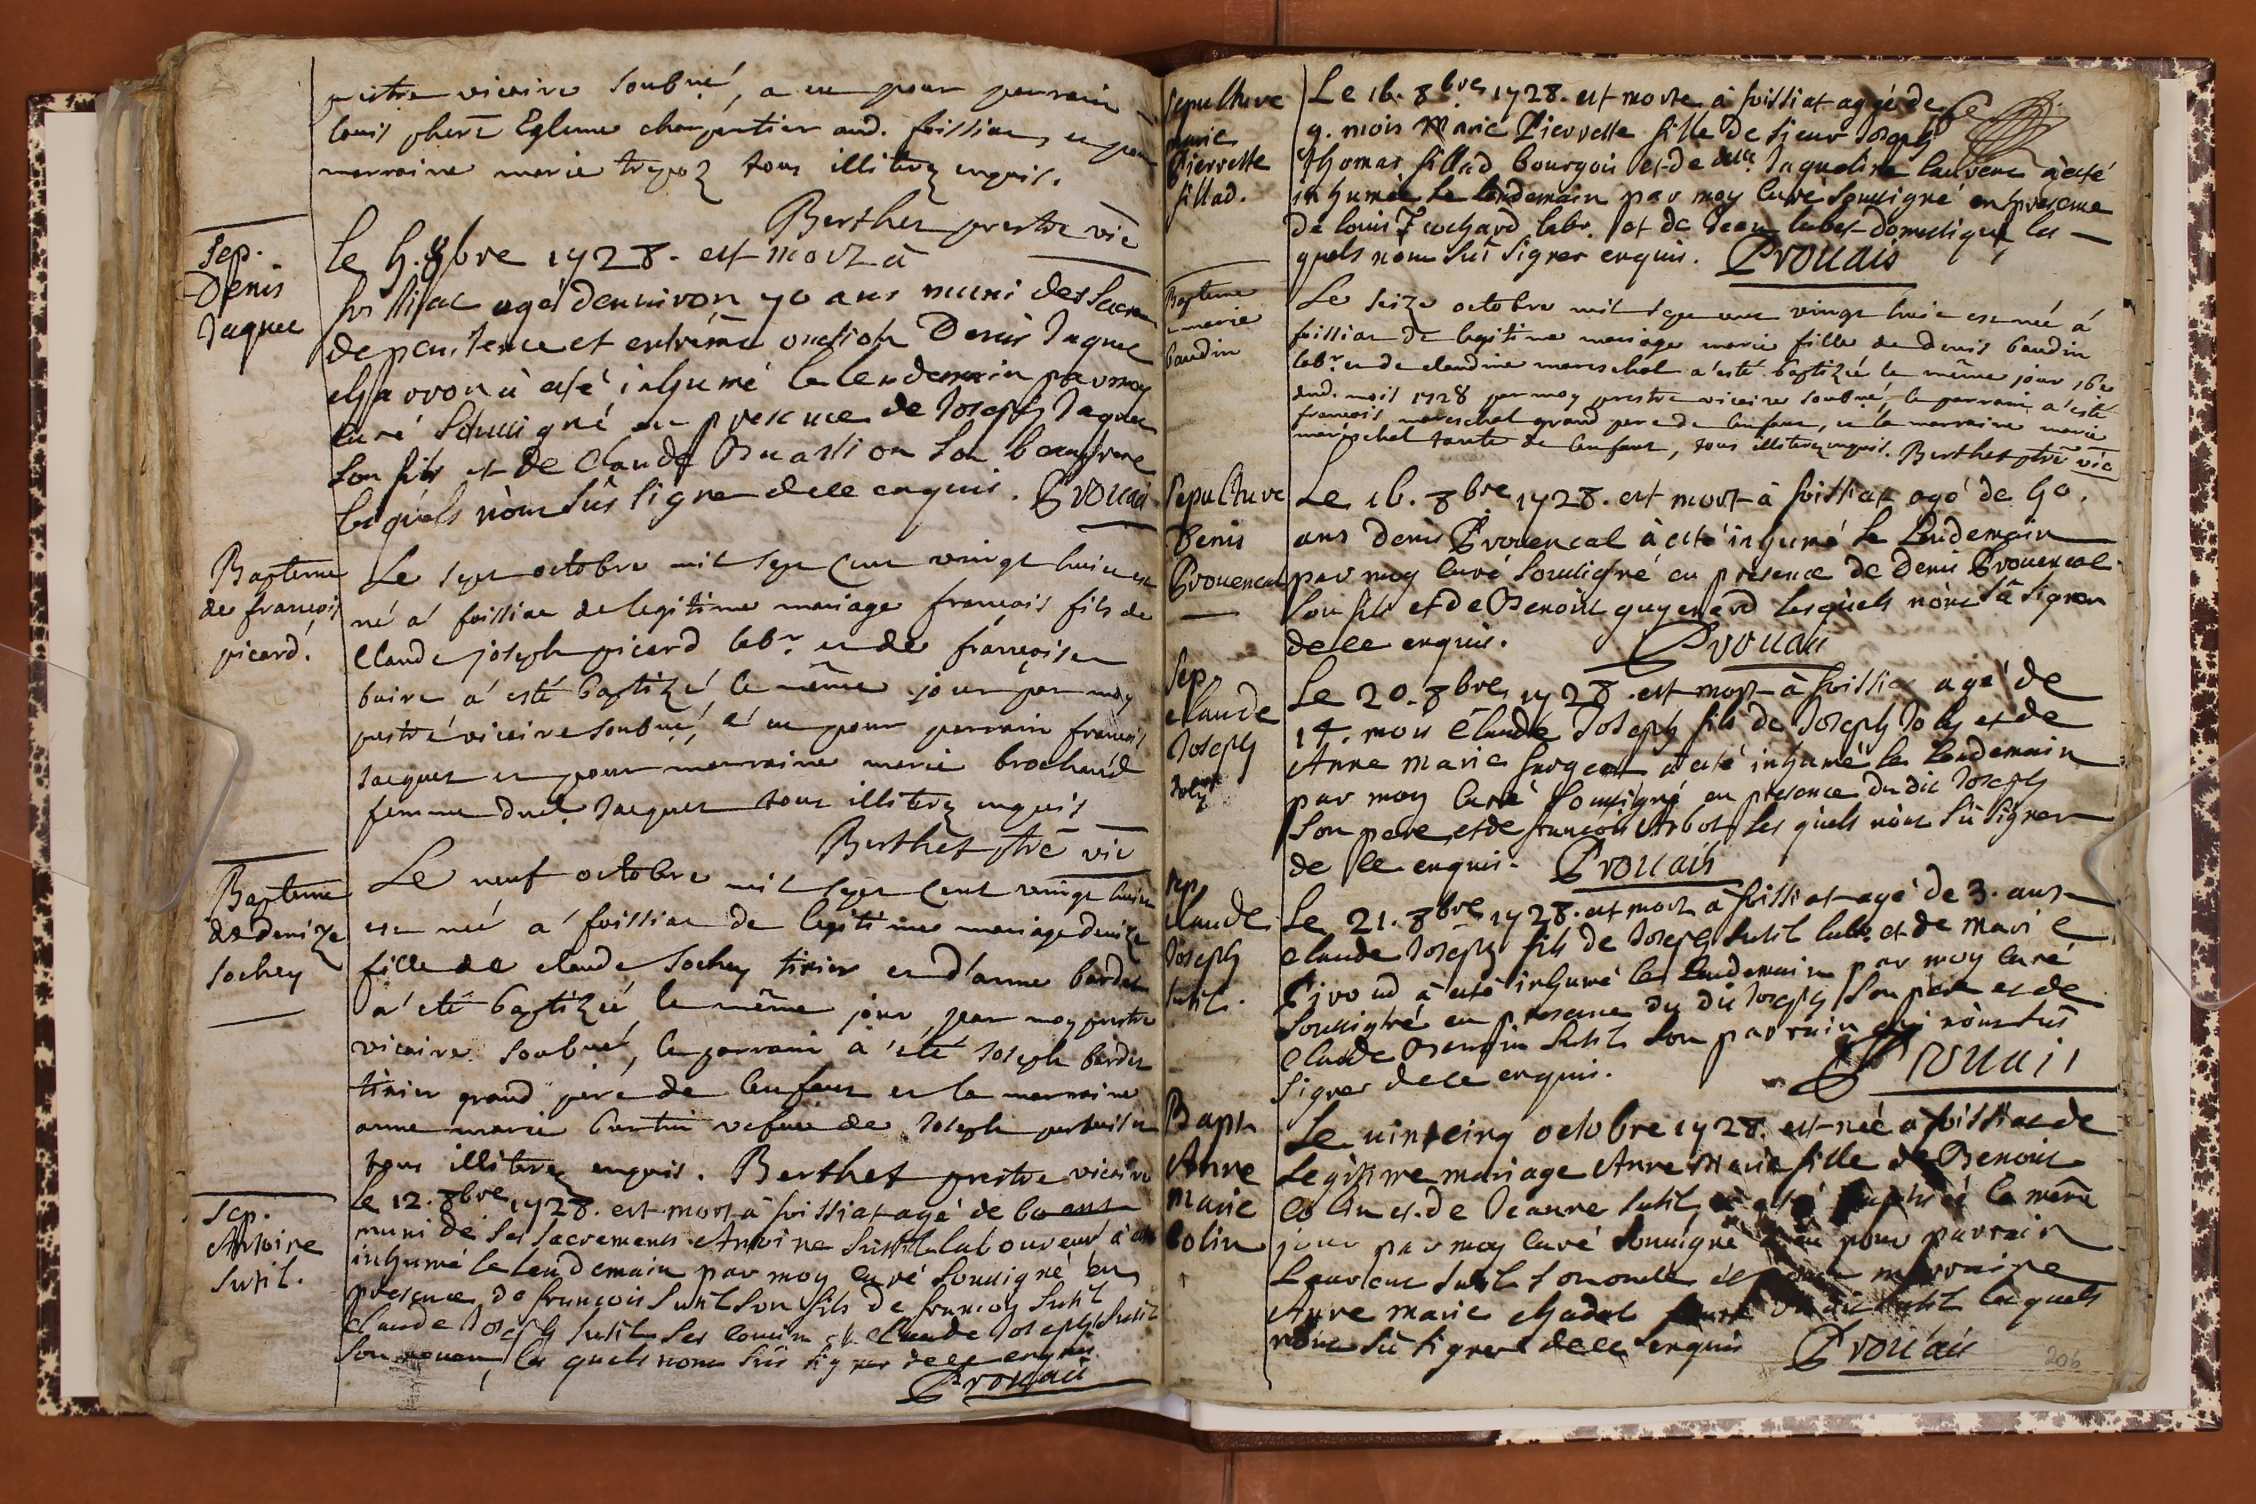 prestre vicaire soubné, a eu pour parrain
louis Egleme charpentier aud. foissiac, et pour
marraine marie trepoz tous illiterez enquis.
Berthet prestre vic
Sep.
Denis
Jaquet
le 5. 8bre 1728. est mort à
foissiat agé denviron 70 ans muni des Sacrem
de penitence et extréme onction Denis Jaquet
à eté inhumé le lendemain par moy
curé soussigné en presence de Joseph Jaquet
son fils et de Claude son beaufrere
lesquels nont sûs signer dece enquis. Prouais
Bapteme
de françois
picard.
Le sept octobre mil sept cent vingt huit est
né a foissiac de legitime mariage francois fils de
Claude joseph picard labr. et de françoise
buire a esté baptizé le même jour par moy
prestre vicaire soubné, a eu pour parrain francois
Jacquet et pour marraine marie brochard
femme dud. Jacquet tous illiterez enquis
Berthet ptre vic
Bapteme
de denize
Sochey
Le neuf octobre mil sept cent vingt huit
est née a foissiac de legitime mariage denize
fille de claude Sochey tixier et d'anne bardet
a eté baptizée le même jour par moy prestre
vicaire soubné, le parrain a eté Joseph bardet
tixier grand pere de lenfant et la marraine
anne marie vefue de Joseph
tous illiterez enquis. Berthet prestre vicaire
Sep.
Antoine
Sutil.
le 12. 8bre 1728. est mort à foissiat agé de 60 ans
muni de ses sacrements Antoine Sutil laboureur à eté
inhumé le lendemain par moy curé soussigné en
presence de francois Sutil son fils de francois Sutil
Claude Joseph Sutil ses cousin et Claude Joseph Sutil
son neveu, les quels nont sûs signer dece enquis
Prouais
Sepulture
marie
Pierrette
fillad.
Le 16. 8bre 1728. est morte à foissiat aggé de
9. mois Marie Pierrette fille de sieur Joseph
Thomas fillad bourgois et de delle. Jaqueline Laurent à eté
inhumée le lendemain par moy curé soussigné en presence
de louis Trochard labr. et de Jean domestique les
quels nont sûs signer enquis. Prouais
Bapteme
marie
baudin
Le seize octobre mil sept cent vingt huit est née á
foissiac de legitime mariage marie fille de denis baudin
labr. et de claudine mareschal a esté baptizée le même jour 16e
dud. mois 1728 par moy prestre vicaire soubné, le parrain a esté
francois mareschal grand pere de lenfant, et la marraine marie
mareschal tante de lenfant, tous illiterez enquis. Berthet ptre vic
Sepulture
Denis
Prouencal
Le 16. 8bre 1728. est mort à foissiat agé de 50.
ans denis Prouencal à eté inhumé le lendemain
par moy curé soussigné en presence de denis Prouencal
son fils et de Benoist guyenard lesquels nont sû signer
de ce enquis. Prouais
Sep.
Claude
Joseph
Joly
Le 20. 8bre 1728. est mort à foissiat agé de
14. mois Claude Joseph fils de Joseph Joly et de
Anne Marie à eté inhumé le lendemain
par moy curé soussigné en presence du dit Joseph
son pere, et de françois Arbot les quels nont sû signer
de ce enquis. Prouais
sep.
Claude
Joseph
Sutil.
Le 21. 8bre 1728. est mort à foissiat agé de 3. ans
Claude Joseph fils de Joseph Sutil labr. et de Marie
Piroud à eté inhumé le lendemain par moy curé
soussigné en presence du dit Joseph son pere et de
Claude Benoin Sutil son parrain qui nont sûs
signer dece enquis. Prouais
Bapt
Anne
marie
Colin
Le vint cinq octobre 1728. est née à foissiat de
Legitime mariage Anne Marie fille de Benoist
Colin et de Jeanne Sutil, à eté baptisée le même
jour par moy curé soussigné à eû pour parrain
Laurent Sutil son oncle et pour marraine
Anne Marie Chadal Sutil lesquels
nont sû signer dece enquis Prouais
206